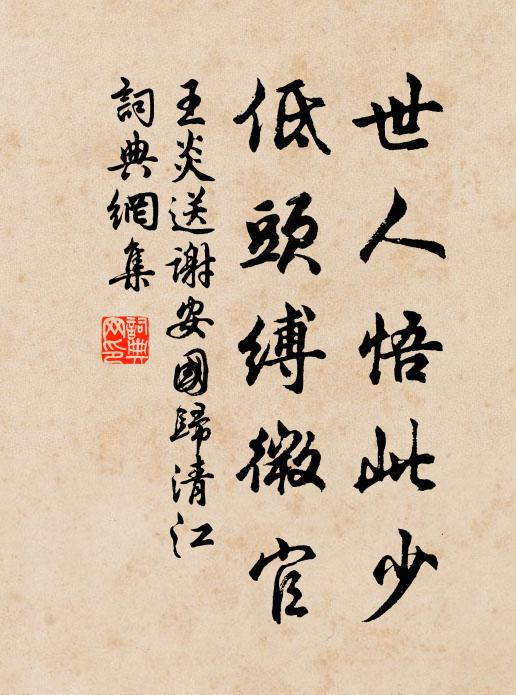 世人悟此少
低頭縛微官
王炎送謝安國歸清江
詞典網集
詞典網印